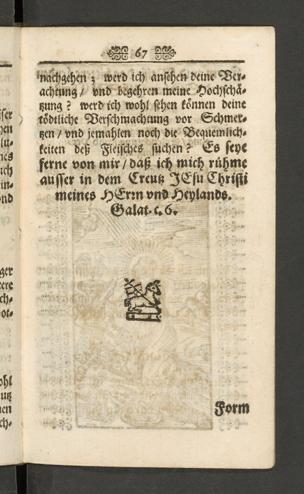 67
nachgehen; werd ich ansehen deine Ver-
achtung/ und begehren meine Hochschä-
tzung? werd ich wohl sehen können deine
tödtliche Verschmachtung vor Schmer-
tzen/ und jemahlen noch die Bequemlich-
keiten deß Fleisches suchen? Es seye
ferne von mir/ daß ich mich rühme
ausser in dem Creutz JEsu Christi
meines HErrn und Heylands.
Galat. c. 6.
Form